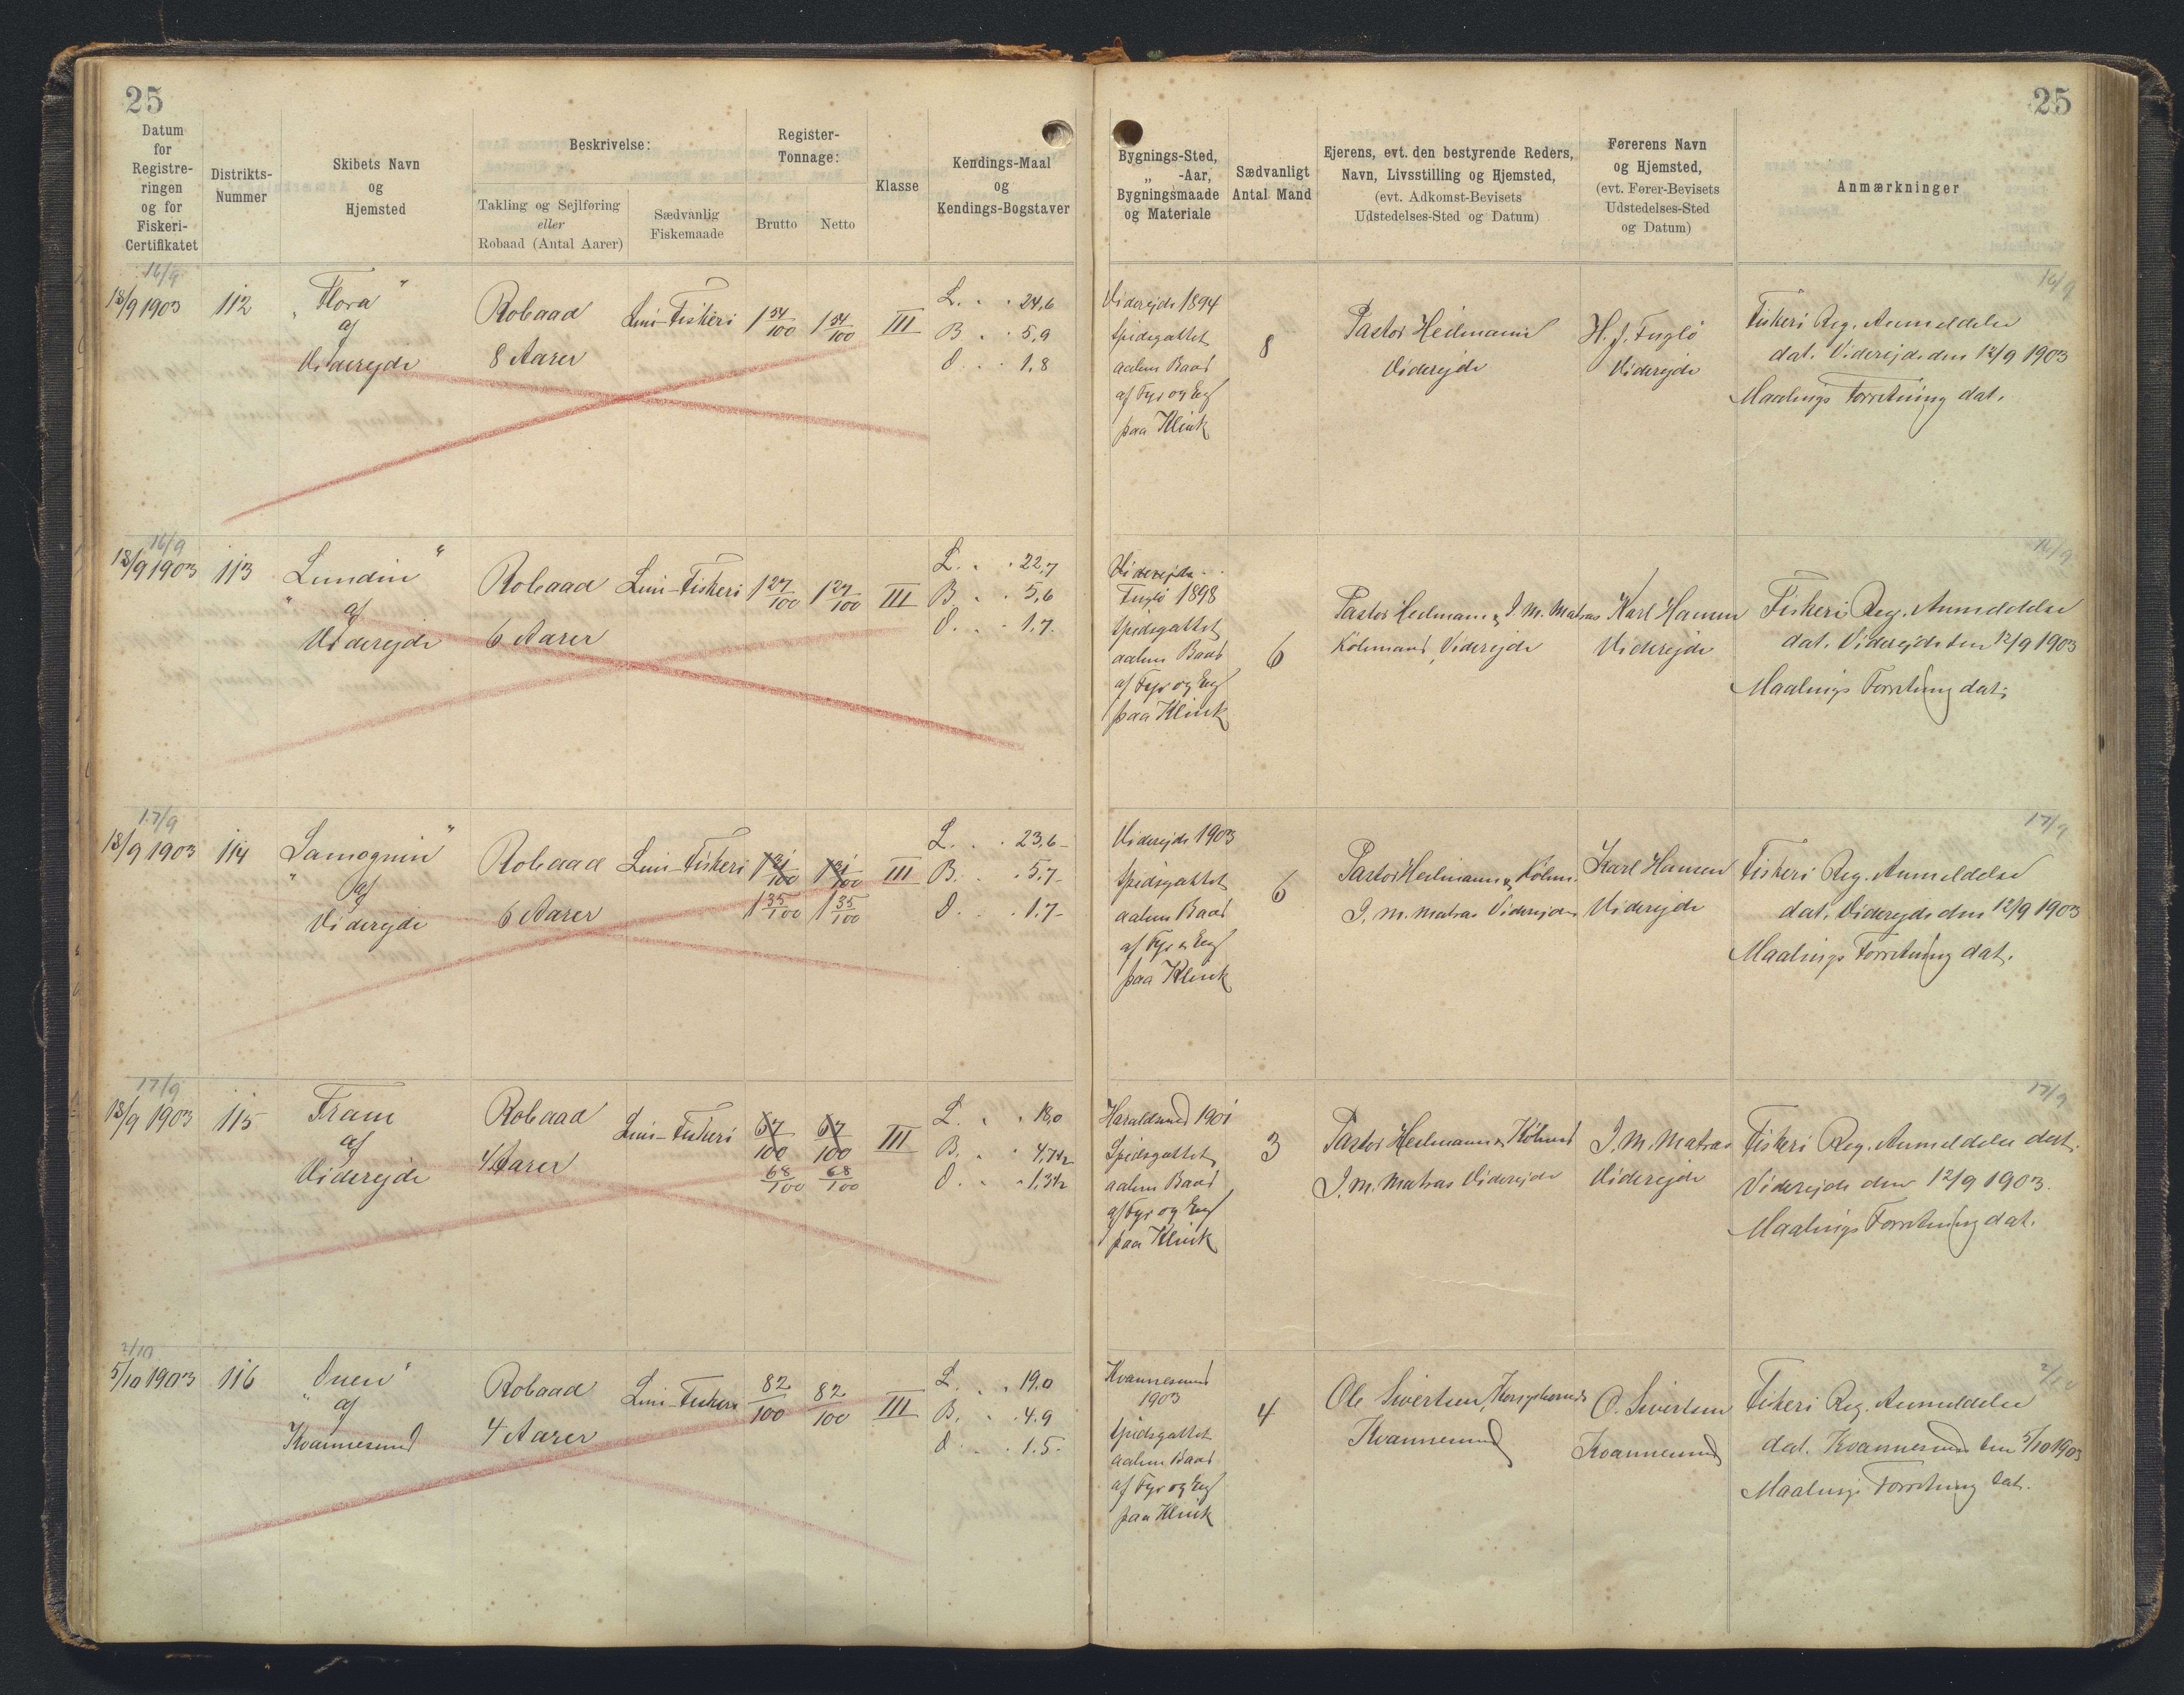 25
25
Datum
for
Registre-
ringen
og for
Fiskeri-
Certifikatet
Distrikts-
Nummer
Skibets Navn
og
Hjemsted
Beskrivelse:
Takling og Sejlføring
eller
Robaad (Antal Aarer)
Sædvanlig
Fiskemaade
Register-
Tonnage:
Brutto
Netto
Klasse
Kendings-Maal
og
Kendings-Bogstaver
Bygnings-Sted,
„ -Aar,
Bygningsmaade
og Materiale
Sædvanligt
Antal Mand
Ejerens, evt. den bestyrende Reders,
Navn, Livsstilling og Hjemsted,
(evt. Adkomst-Bevisets
Udstedelses-Sted og Datum)
Førerens Navn
og Hjemsted,
(evt. Fører-Bevisets
Udstedelses-Sted
og Datum)
Anmærkninger
16/9
18/9 1903
112
„Flora“
af
Viderejde
Robaad
8 Aarer
Lini-Fiskeri
1 54/100
1 54/100
III
L. . . 24,6
B . . 5,9
D. . . 1,8
Viderejde 1894
Spidsgattet
aaben Baad
af Fyr og Eg
paa Klink
8
Pastor Heilmann
Viderejde
H. J. Fuglö
Viderejde
16/9
Fiskeri Reg. Anmeldelse
dat. Viderejde den 12/9 1903
Maalings Forretning dat.
16/9
18/9 1903
113
„Lundin“
af
Viderejde
Robaad
6 Aarer
Lini-Fiskeri
1 27/100
1 27/100
III
L. . . 22,7
B . . 5,6
D. . . 1,7.
Viderejde
Fuglö 1898
Spidsgattet
aaben Baad
af Fyr og Eg
paa Klink
6
Pastor Heilmann & J. M. Matras
Kölmand, Viderejde
Karl Hansen
Viderejde
16/9
Fiskeri Reg. Anmeldelse
dat. Viderejde den 12/9 1903
Maalings Forretning dat.
17/9
18/9 1903
114
af
Viderejde
Robaad
6 Aarer
Lini-Fiskeri
1 31/100
1 31/100
1 35/100
1 35/100
III
L. . . 23,6-
B. . . 5,7-
D. . . 1,7-
Viderejde 1903
Spidsgattet
aaben Baad
af Fyr & Eg
paa Klink
6
Pastor Heilmann & Kölm.
J. M. Matras Viderejde
Karl Hansen
Viderejde
17/9
Fiskeri Reg. Anmeldelse
dat. Viderejde den 12/9 1903
Maalings Forretning dat.
17/9
18/9 1903
115
Fram
af
Viderejde
Robaad
4 Aarer
Lini-Fiskeri
67/100
67/100
68/100
68/100
III
L. . . 18,0
B. . . 4,7½
D. . . 1,3½
Haraldsund 1901
Spidsgattet
aaben Baad
af Fyr og Eg
paa Klink
3
Pastor Heilmann & Kölmd
J. M. Matras Viderejde
J. M. Matras
Viderejde
17/9
Fiskeri Reg. Anmeldelse dat.
Viderejde den 12/9 1903.
Maalings Forretning dat.
2/10
5/10 1903
116
af
Kvannesund
Robaad
4 Aarer
Lini-Fiskeri
82/100
82/100
III
L. . . 19,0
B. . . 4,9
D. . . 1.5-
Kvannesund
1903
Spidsgattet
aaben Baad
af Fyr og Eg
paa Klink
4
Ole Sivertsen,
Kvannesund
O. Sivertsen
Kvannesund
2/10
Fiskeri Reg. Anmeldelse
dat. Kvannesund den 5/10 1903
Maalings Forretning dat.